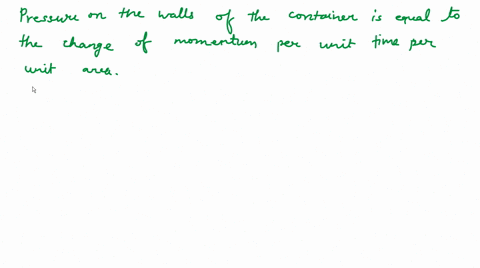 Pressure on the walls of the container is equal to
the change of momentum per unit time per
unit area.